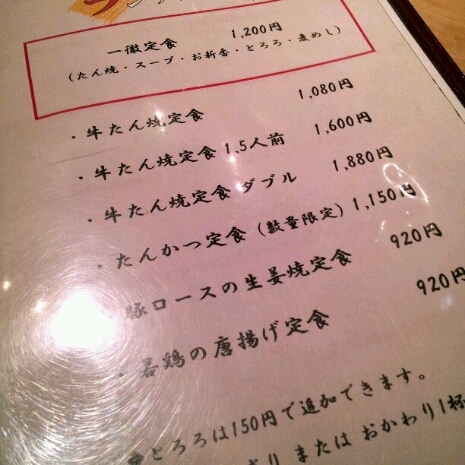 一徹定食 1,200円
(たん焼・スープ・お新香・とろろ・麦めし)
・牛たん焼定食 1,080円
・牛たん焼定食 1.5人前 1,600円
・牛たん焼定食 ダブル 1,880円
・たんかつ定食 (数量限定) 1,150円
豚ロースの生姜焼定食 920円
・若鶏の唐揚げ定食 920円
とろろは150円で追加できます。
または おかわり1杯